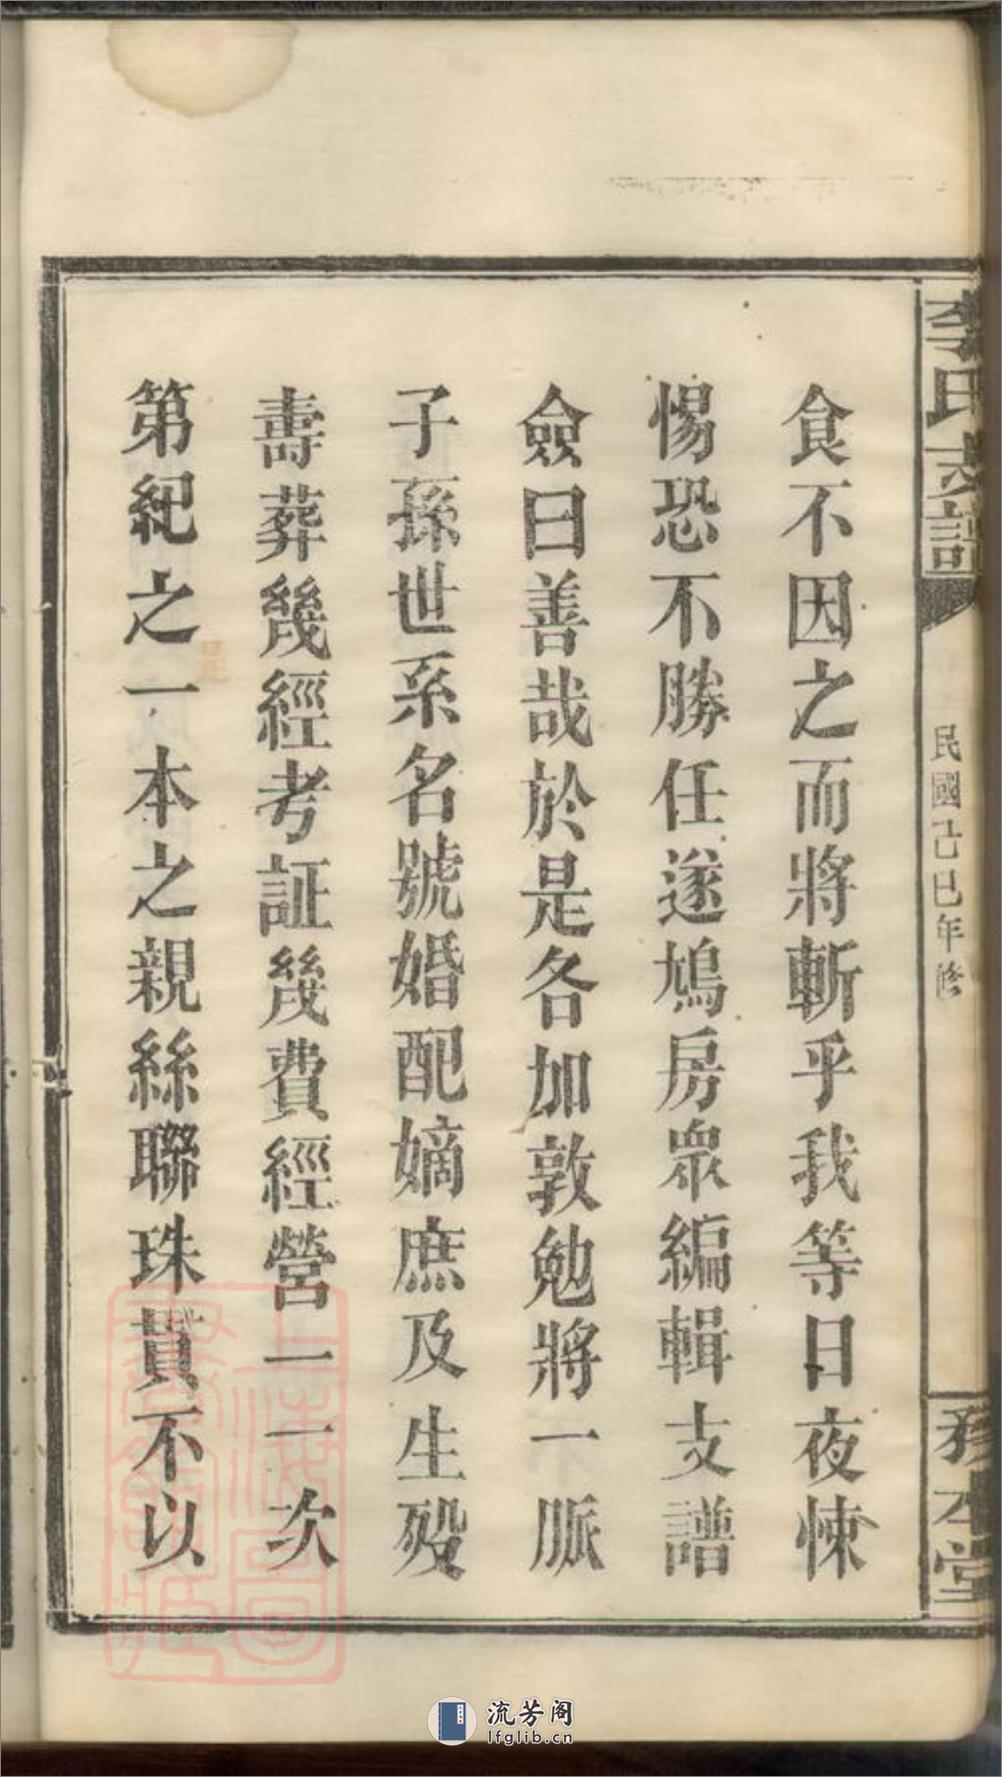 李氏支譜
民國己巳年修
務本堂
食不因之而將斬乎我等日夜悚
惕恐不勝任遂鳩房眾編輯支譜
僉曰善哉於是各加敦勉將一脈
子孫世系名號婚配嫡庶及生歿
壽葬幾經考証幾費經營一一次
第紀之一本之親絲聯珠貫不以
上海圖書館藏
流芳阁
lfglib.cn